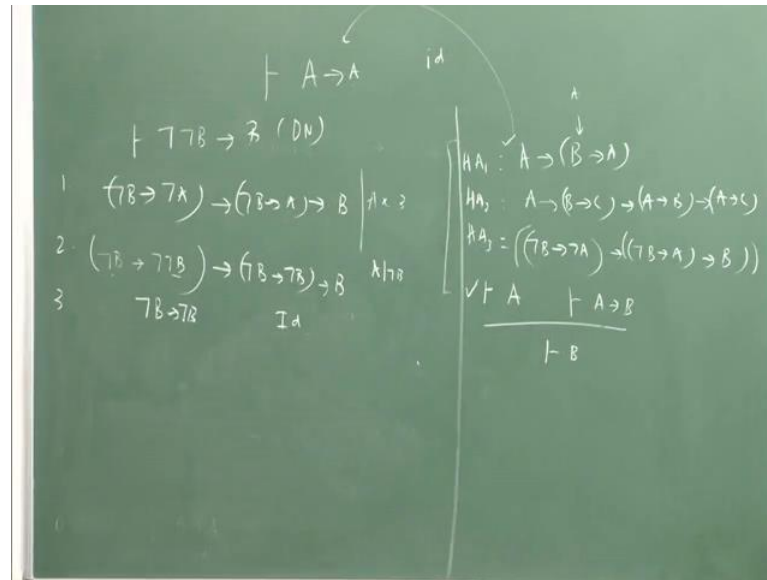 ⊢ A → A    id
⊢ ¬¬B → B (DN)
1 (¬B → ¬A) → (¬B → A) → B | Ax 3
2. (¬B → ¬¬B) → (¬B → ¬B) → B    A|¬B
3 ¬B → ¬B    Id
A
↓
HA₁ : A → (B → A)
HA₂ : A → (B → C) → (A → B) → (A → C)
HA₃ = ((¬B → ¬A) → ((¬B → A) → B))
✓ ⊢ A    ⊢ A → B
⊢ B